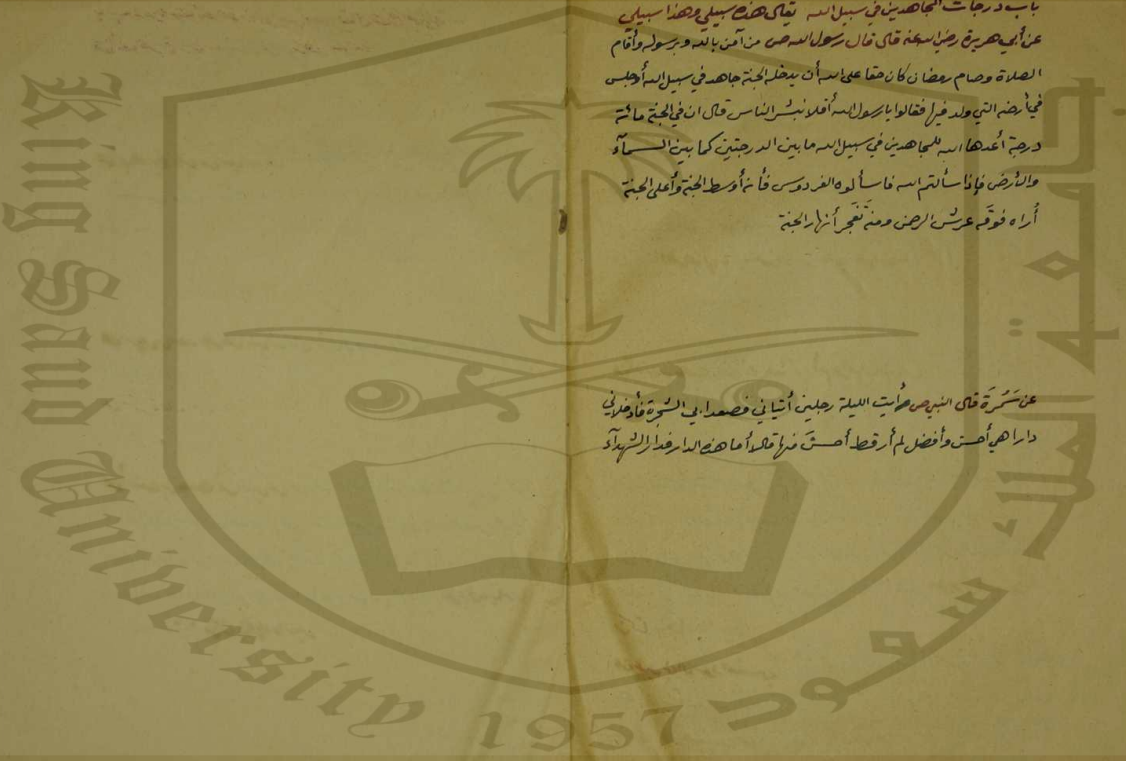 باب درجات المجاهدين في سبيل الله يقال هذه سبيلي وهذا سبيلي
عن أبي هريرة رضي الله عنه قال قال رسول الله ص من آمن بالله وبرسوله وأقام
الصلاة وصام رمضان كان حقا على الله أن يدخله الجنة جاهد في سبيل الله أو جلس
في أرضه التي ولد فيها فقالوا يا رسول الله أفلا نبشر الناس قال ان في الجنة مائة
درجة أعدها الله للمجاهدين في سبيل الله ما بين الدرجتين كما بين السمآء
والأرض فإذا سألتم الله فاسألوه الفردوس فأنه أوسط الجنة وأعلى الجنة
أُراه فوقَه عرش الرحمن ومنه تَفَجر أنهار الجنة
عن سَمُرَة قال النبي ص رأيت الليلة رجلين أتياني فصعدا بي الشجرة فأدخلاني
دارا هي أحسن وأفضل لم أر قط أحسنَ منها قالا أما هذه الدار فدار الشهدآء
King Saud University 1957
جامعة الملك سعود